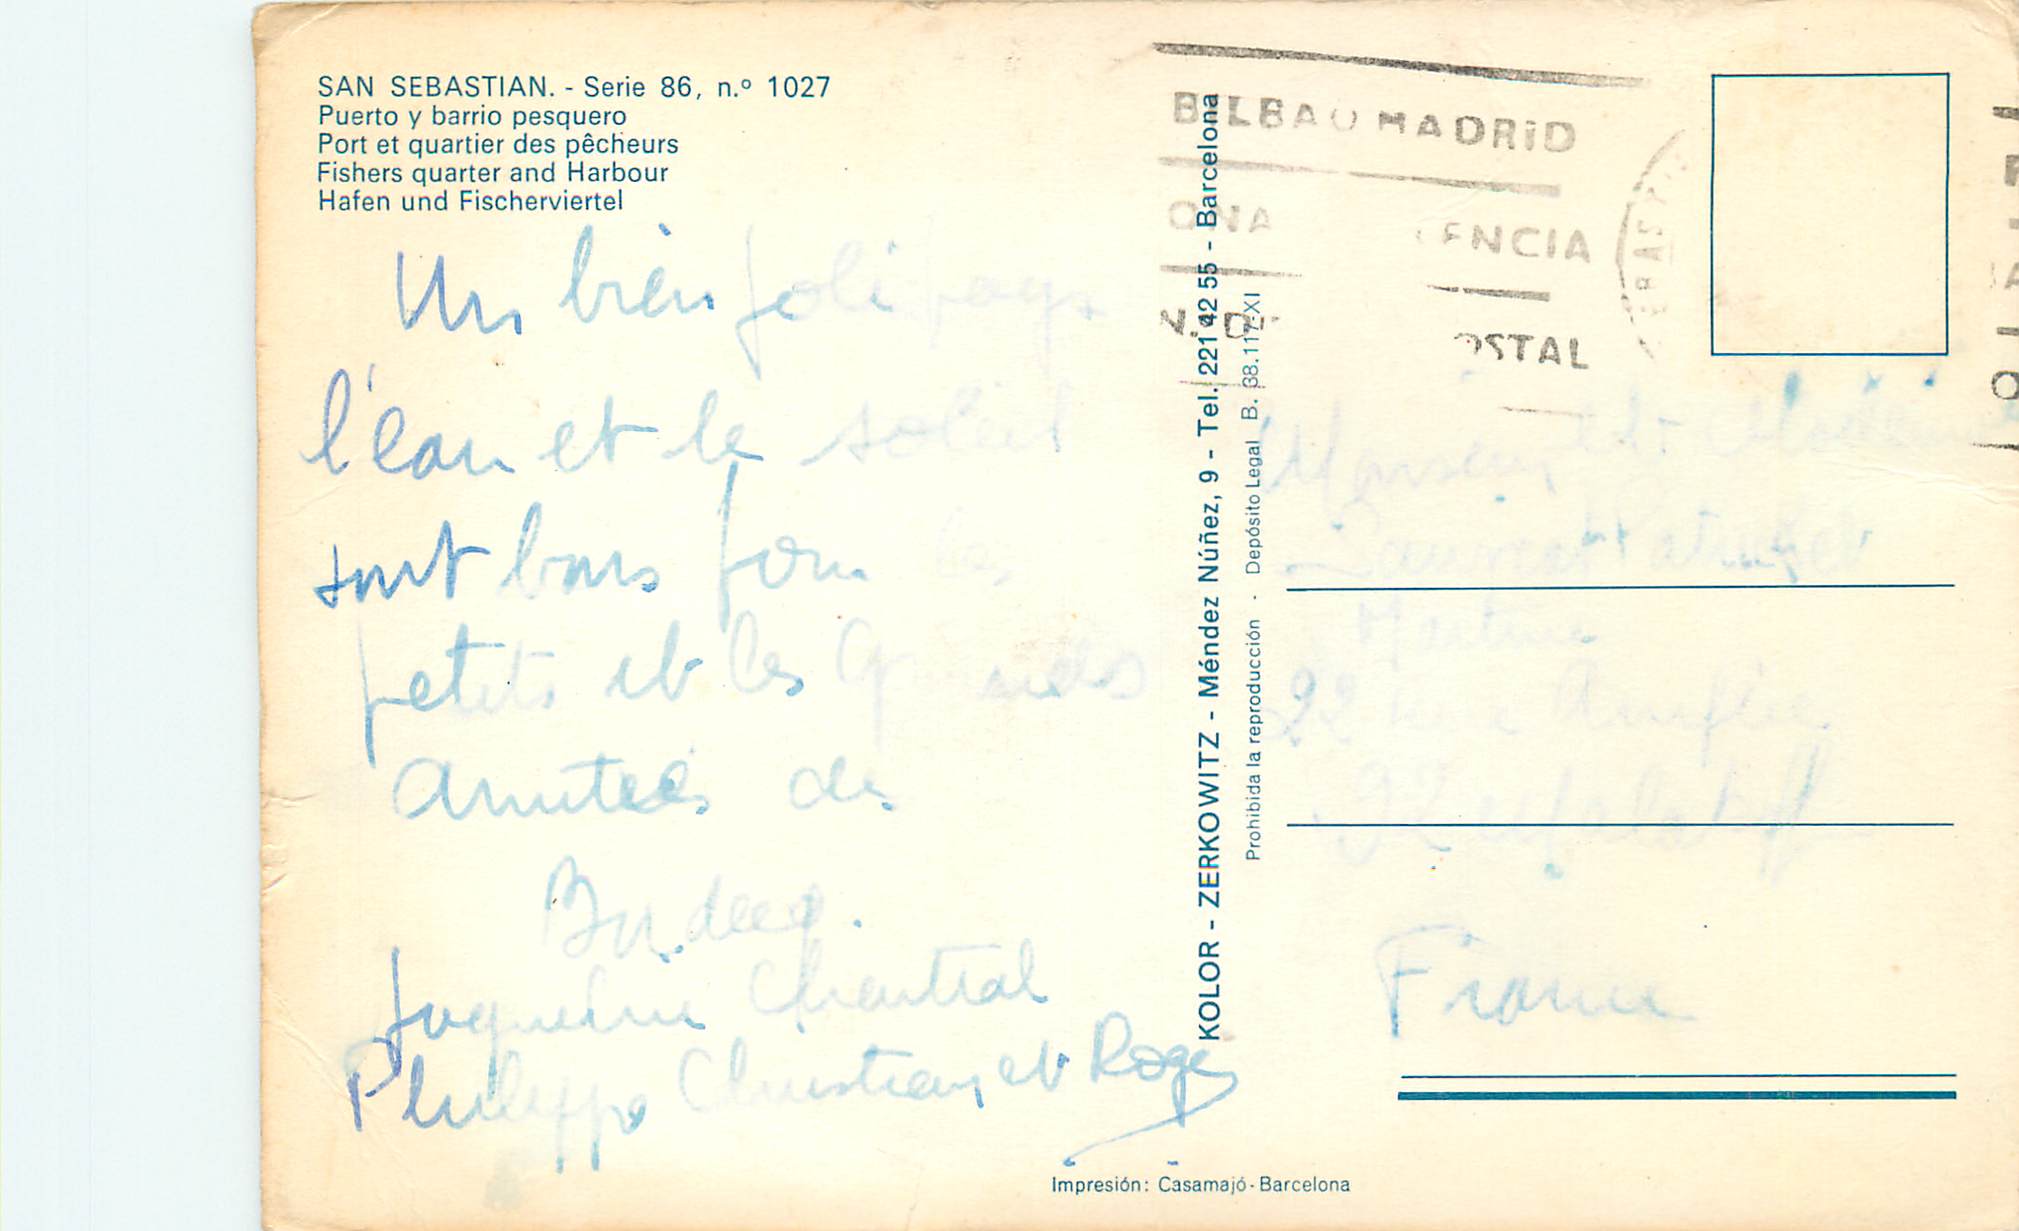 SAN SEBASTIAN. - Serie 86, n.º 1027
Puerto y barrio pesquero
Port et quartier des pêcheurs
Fishers quarter and Harbour
Hafen und Fischerviertel
Un bien joli pays
l'eau et le soleil
sont bons pour les
petits et les Grands
Amitiés de
Jaqueline Chantal
Philippe Christian et Roger
BILBAO MADRID
ONA ENCIA
N. D OSTAL
KOLOR - ZERKOWITZ - Méndez Núñez, 9 - Tel. 221 42 55 - Barcelona
Prohibida la reproducción - Depósito Legal B. 38.117-XI
Monsieur et
Laurent
Martine
22 rue
92
France
Impresión: Casamajó-Barcelona